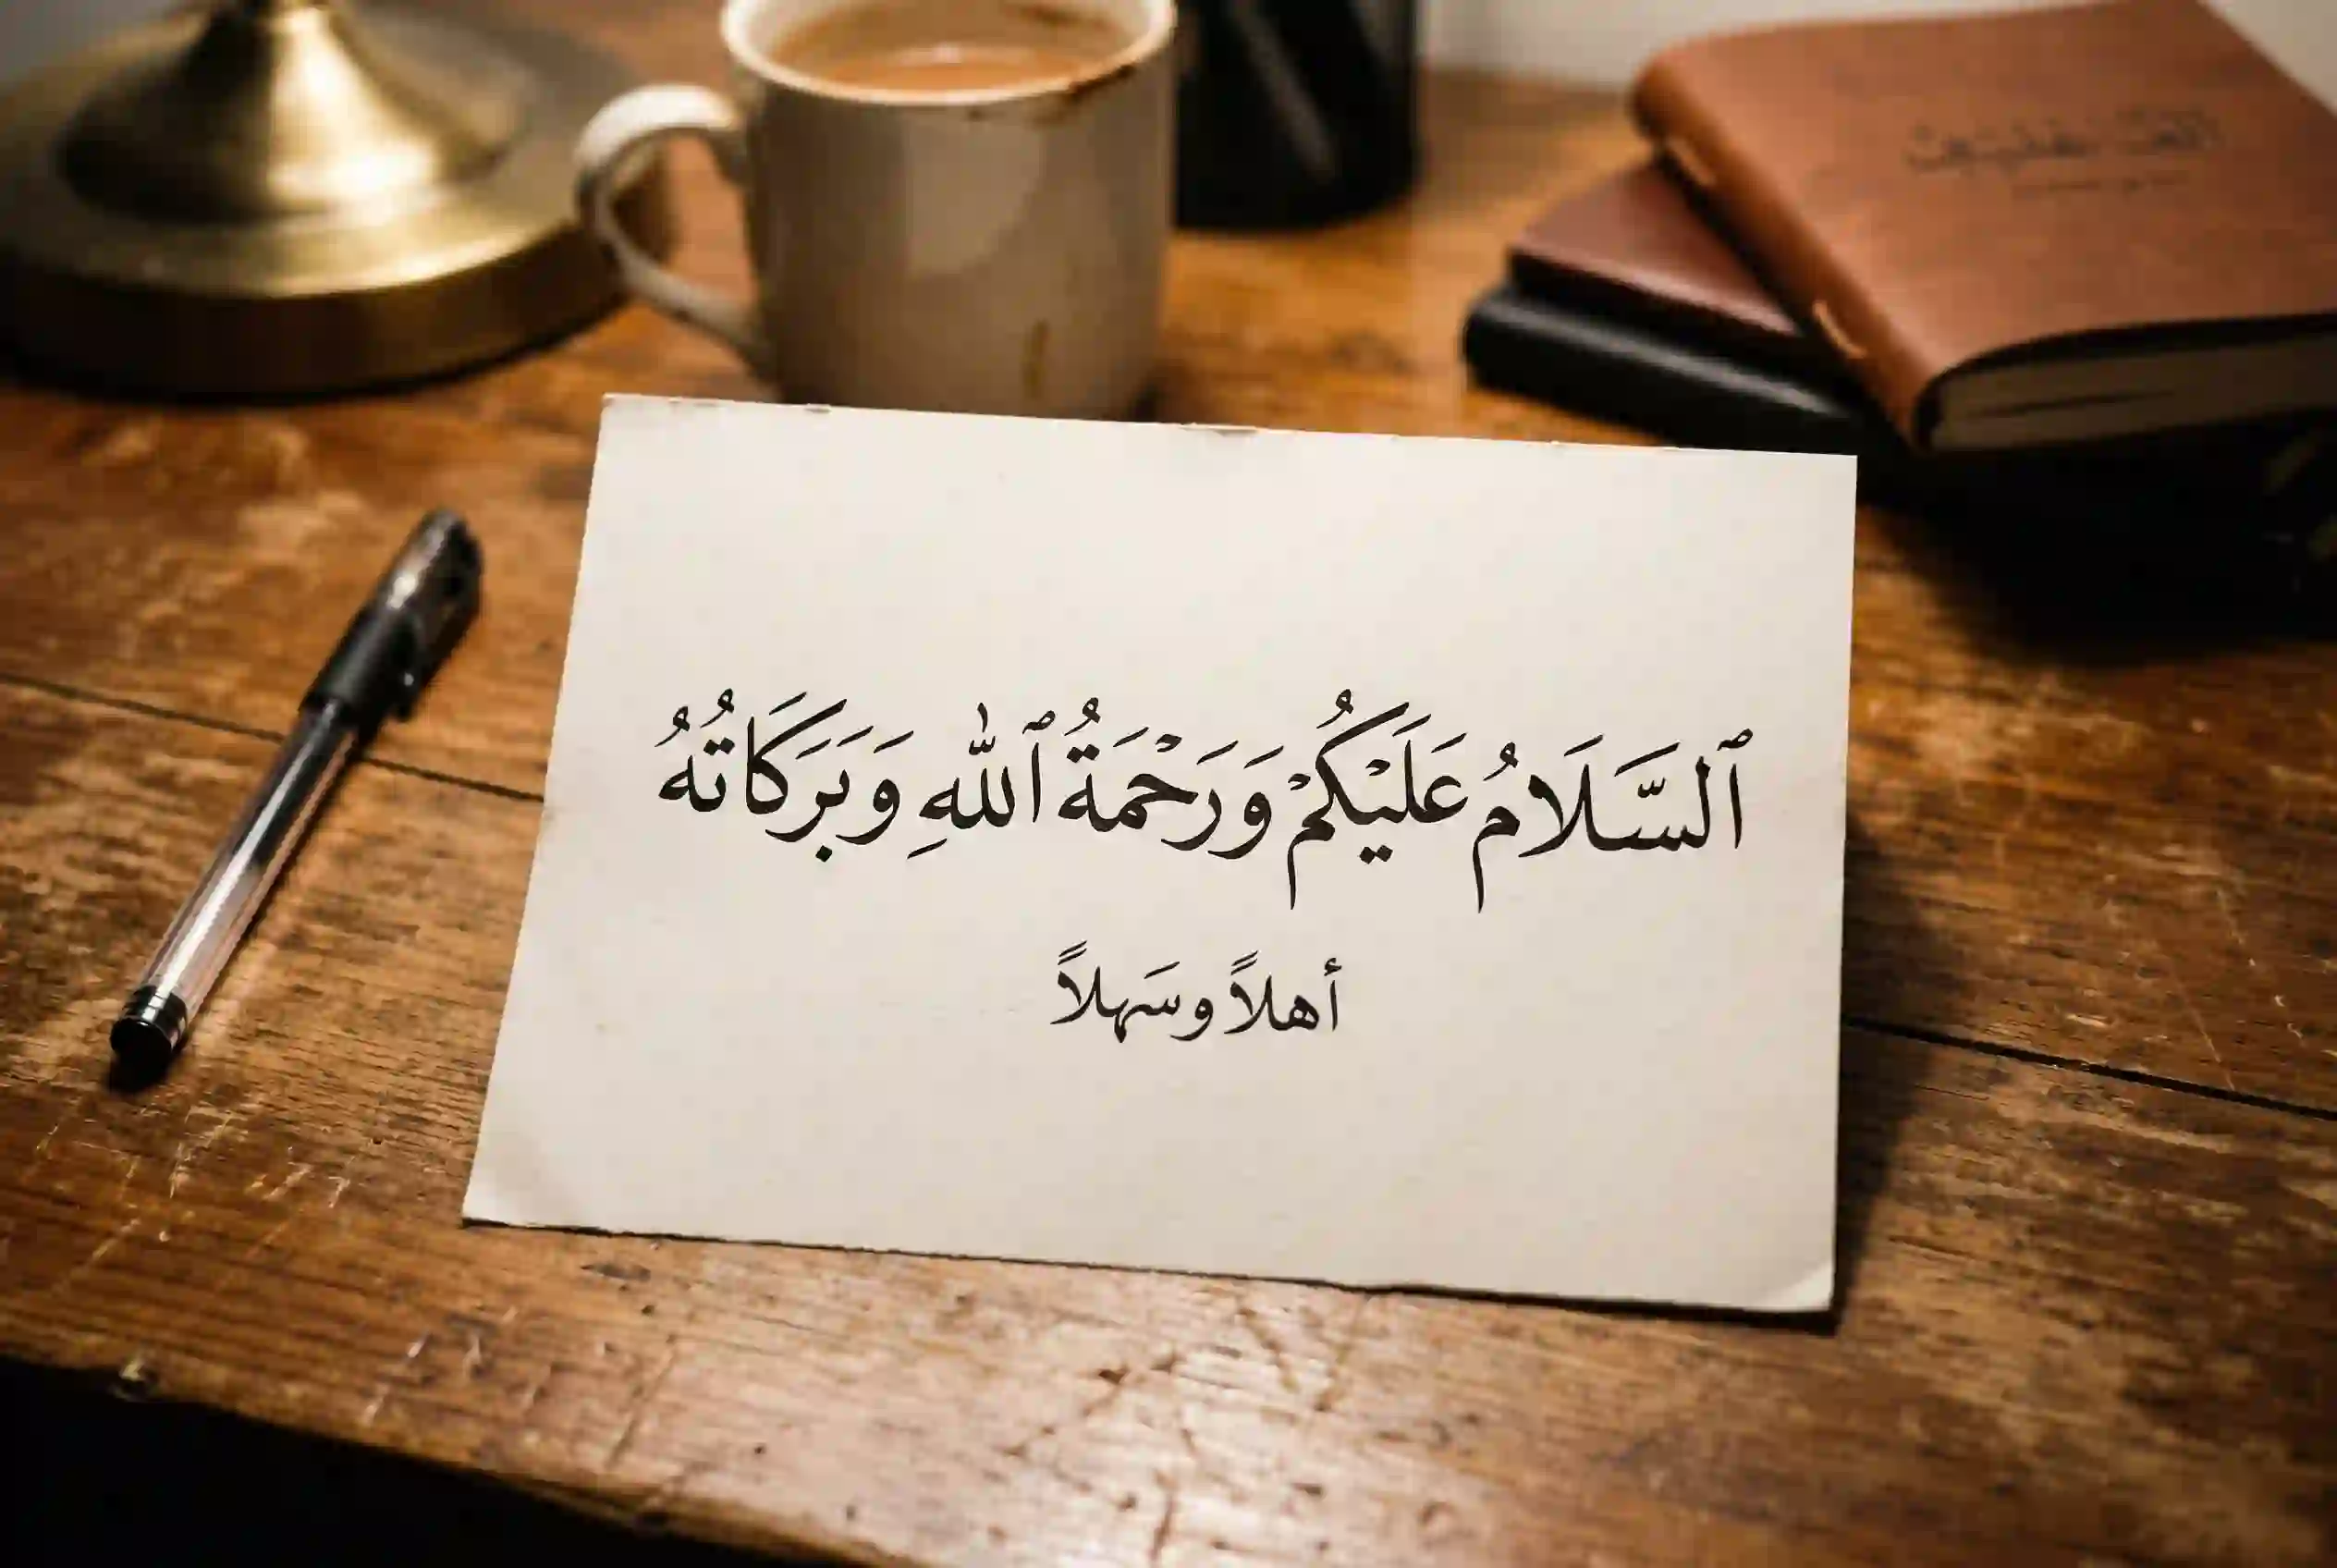 ٱلسَّلَامُ عَلَيْكُمْ وَرَحْمَةُ ٱللّٰهِ وَبَرَكَاتُهُ
أهلاً وسَهلاً